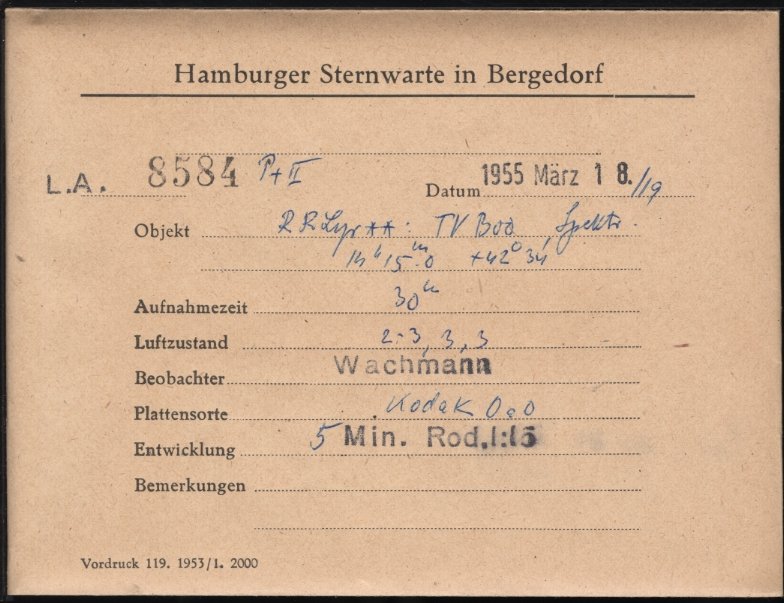 Hamburger Sternwarte in Bergedorf
L.A. 8584 P+II
Datum 1955 März 18./19
Objekt RR Lyr **: TV Boo, Spektr.
14h 15m.0 +42° 34'
Aufnahmezeit 30m
Luftzustand 2-3, 3, 3
Beobachter Wachmann
Plattensorte Kodak OaO
Entwicklung 5 Min. Rod. 1:15
Bemerkungen
Vordruck 119. 1953/1. 2000